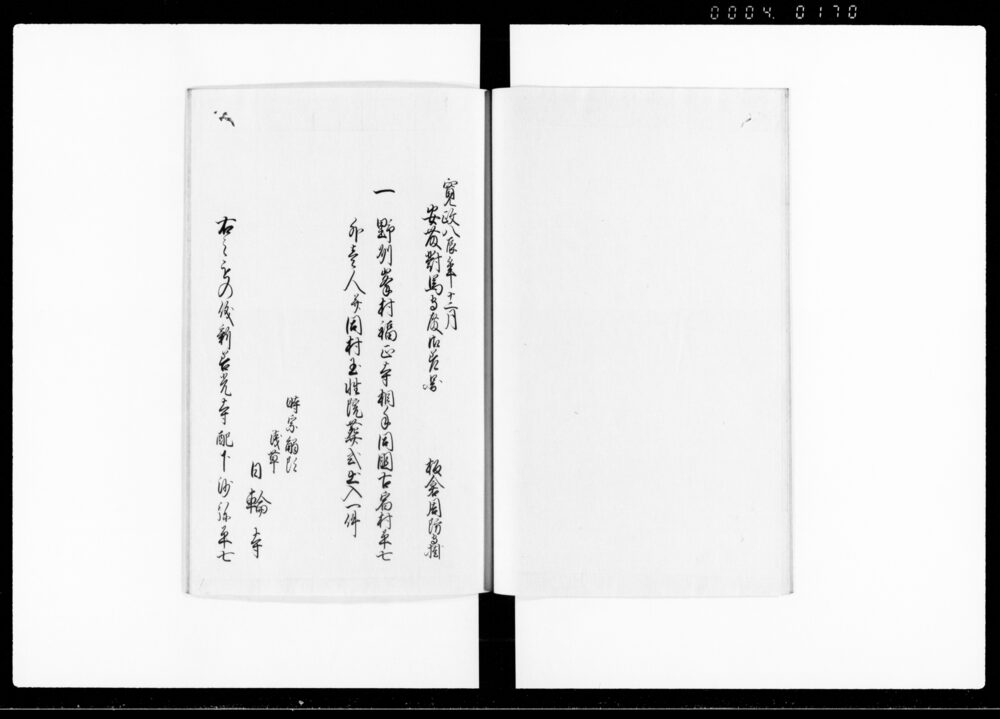 0004 0170
寛政八辰年十二月
安藤對馬守殿御差図
板倉周防守掛
一 野州峯村福正寺相手同国古宿村平七
外壱人并同村玉性院葬式出入一件
時宗觸頭
浅草
日輪寺
右之もの儀新善光寺配下沙弥平七